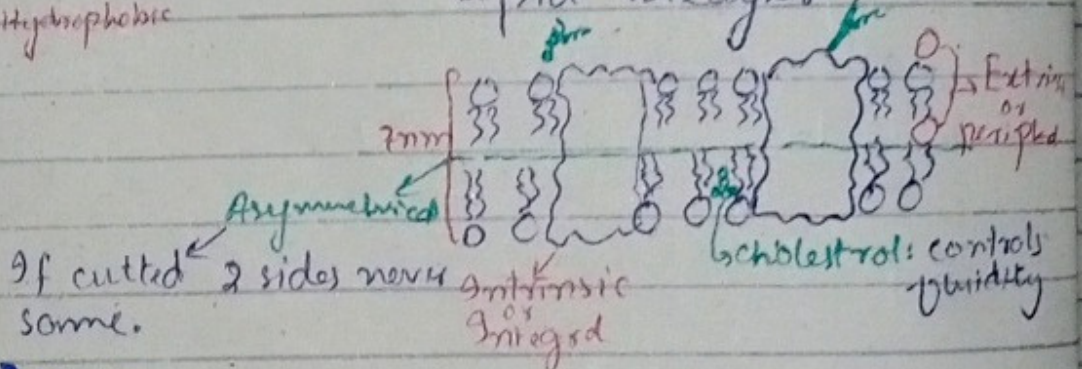 Hydrophobic
7nm
Extrin
or
peripheral
Asymmetrical
If cutted 2 sides never
same.
Intrinsic
or
Integral
Cholestrol: controls
fluidity